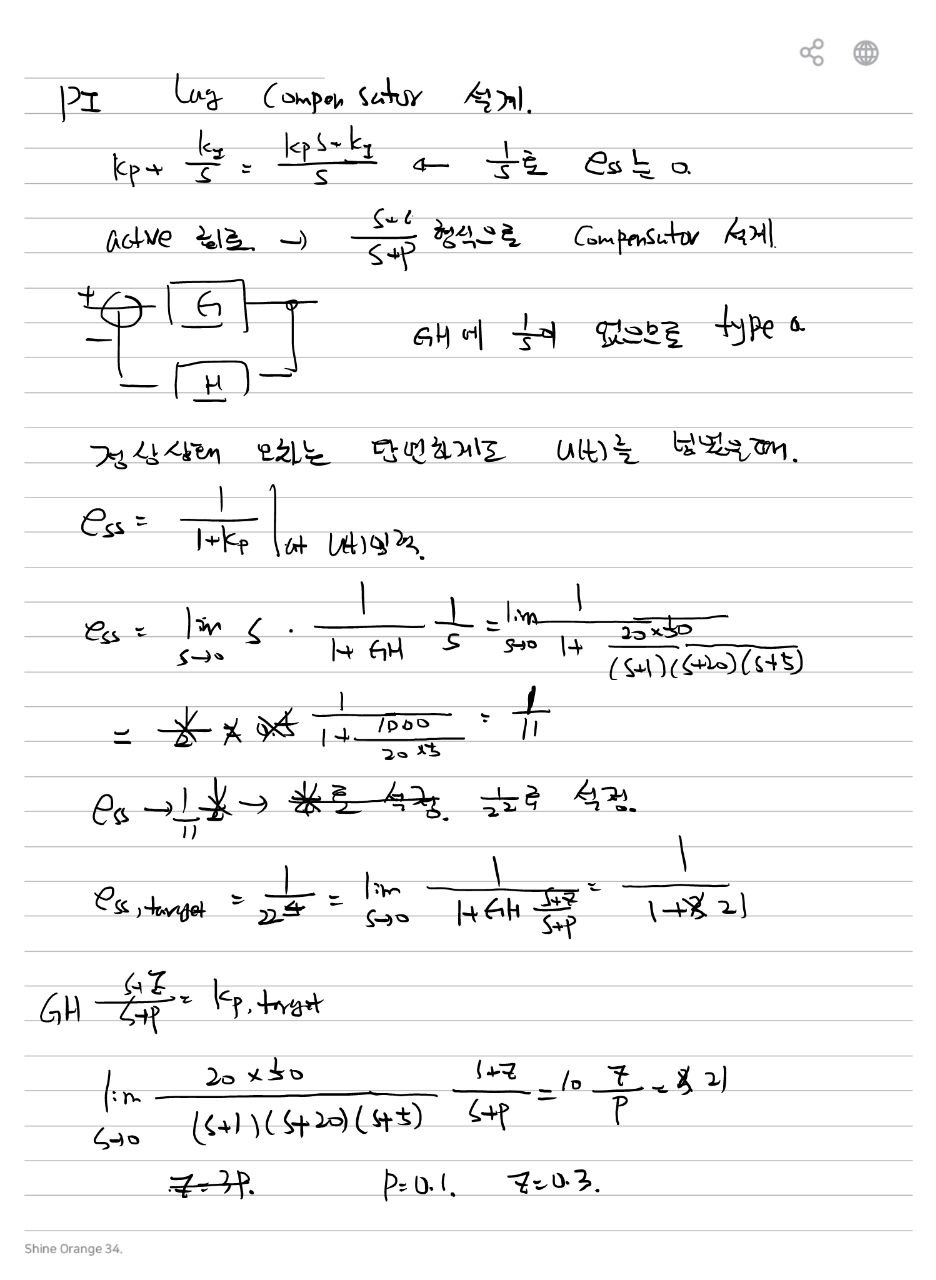 PI Lag Compensator 설계.
kp + kI/s = (kp s + kI)/s ← 1/s로 ess는 0.
active 회로 → (s+z)/(s+p) 형식으로 Compensator 설계
+ G
GH에 1/s이 없으므로 type 0
−
H
정상상태 오차는 단위계단 u(t)를
ess = 1/(1+kp) | at u(t)입력.
ess = lim s→0 s · 1/(1+GH) 1/s = lim s→0 1/(1 + (20×50)/((s+1)(s+20)(s+5)))
= 1/(1 + 1000/(20×5)) = 1/11
ess → 1/11 → 1/22로 설정.
ess, target = 1/22 = lim s→0 1/(1+GH (s+z)/(s+p)) = 1/(1+21)
GH (s+z)/(s+p) = kp, target
lim s→0 (20×50)/((s+1)(s+20)(s+5)) (s+z)/(s+p) = 10 z/p = 21
z=3p. p=0.1. z=0.3.
Shine Orange 34.